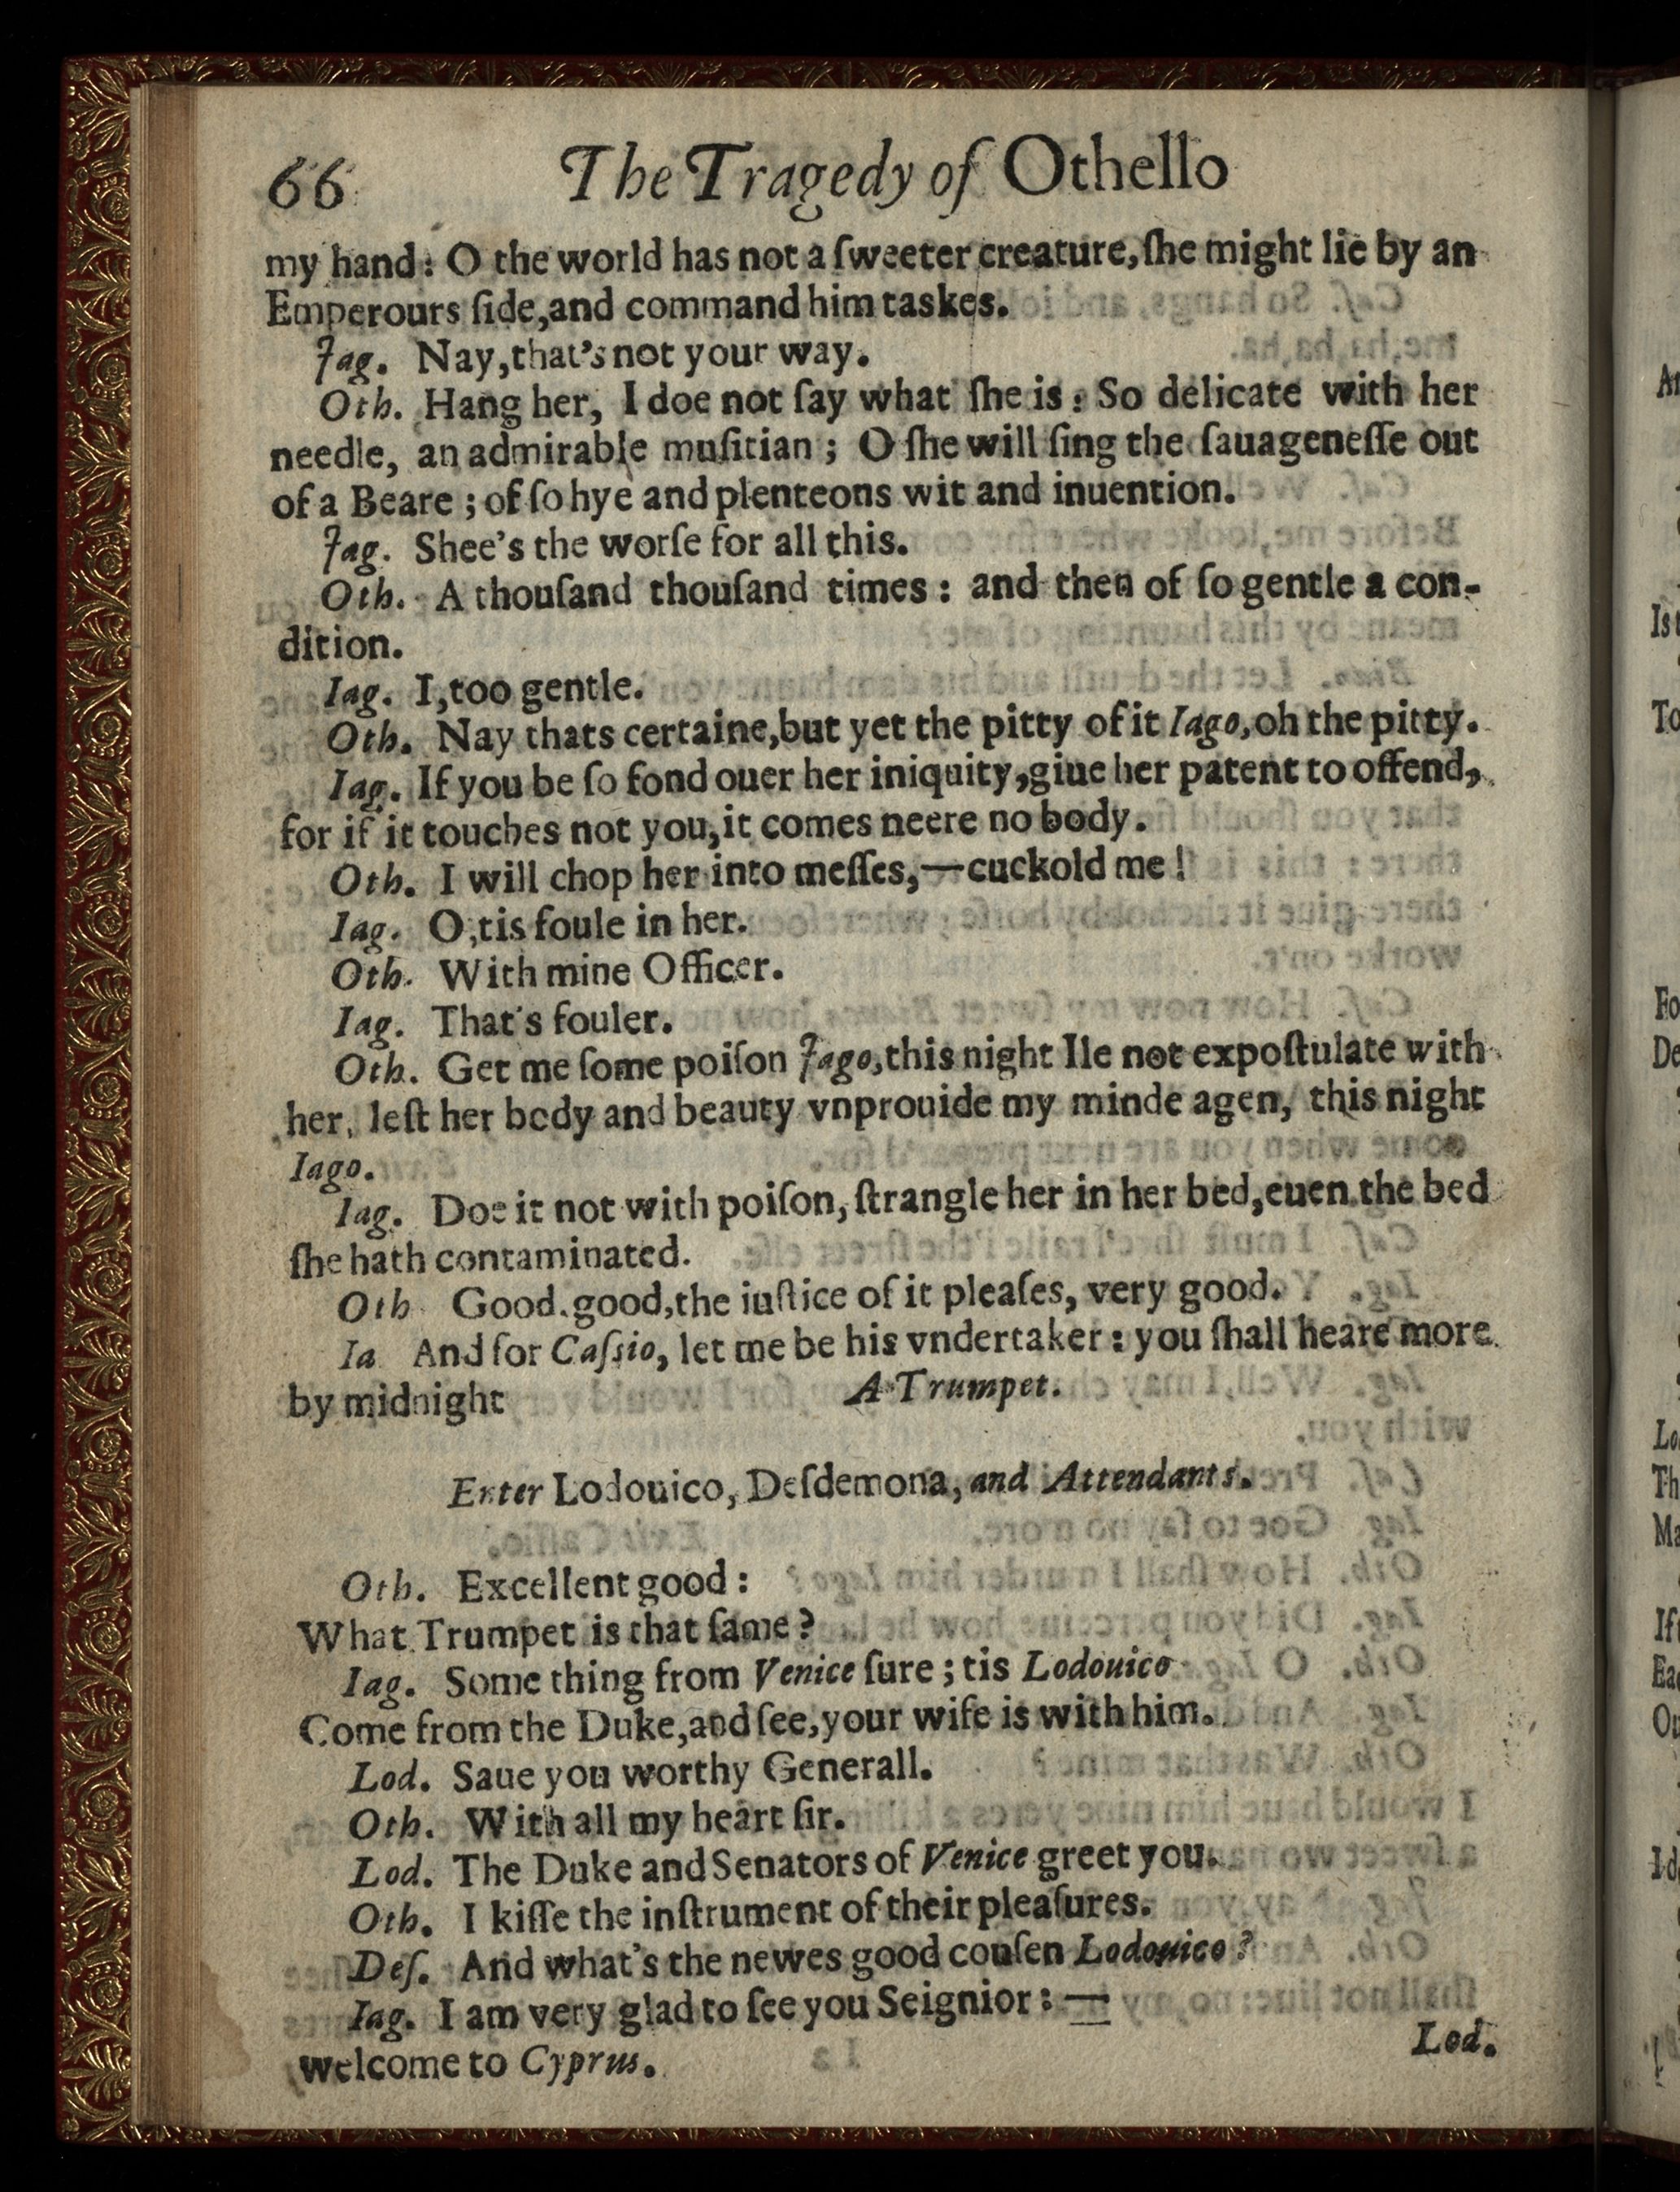 66 The Tragedy of Othello
my hand: O the world has not a ſweeter creature,ſhe might lie by an
Emperours ſide,and command him taskes.
Jag. Nay,that's not your way.
Oth. Hang her, I doe not ſay what ſhe is: So delicate with her
needle, an admirable muſitian; O ſhe will ſing the ſauageneſſe out
of a Beare; of ſo hye and plenteons wit and inuention.
Jag. Shee's the worſe for all this.
Oth. A thouſand thouſand times: and then of ſo gentle a con-
dition.
Iag. I,too gentle.
Oth. Nay thats certaine,but yet the pitty of it Iago,oh the pitty.
Iag. If you be ſo fond ouer her iniquity,giue her patent to offend,
for if it touches not you,it comes neere no body.
Oth. I will chop her into meſſes,—cuckold me!
Iag. O,tis foule in her.
Oth. With mine Officer.
Iag. That's fouler.
Oth. Get me ſome poiſon Jago,this night Ile not expoſtulate with
her, leſt her bcdy and beauty vnprouide my minde agen, this night
Iago.
Iag. Doe it not with poiſon, ſtrangle her in her bed,euen the bed
ſhe hath contaminated.
Oth Good.good,the iuſtice of it pleaſes, very good.
Ia And for Caſsio, let me be his vndertaker: you ſhall heare more
by midnight A Trumpet.
Enter Lodouico, Deſdemona, and Attendants.
Oth. Excellent good:
What Trumpet is that ſame?
Iag. Some thing from Venice ſure; tis Lodouico
Come from the Duke,and ſee,your wife is with him.
Lod. Saue you worthy Generall.
Oth. With all my heart ſir.
Lod. The Duke and Senators of Venice greet you.
Oth. I kiſſe the inſtrument of their pleaſures.
Deſ. And what's the newes good couſen Lodouico?
Iag. I am very glad to ſee you Seignior: —
welcome to Cyprus.
Lod.